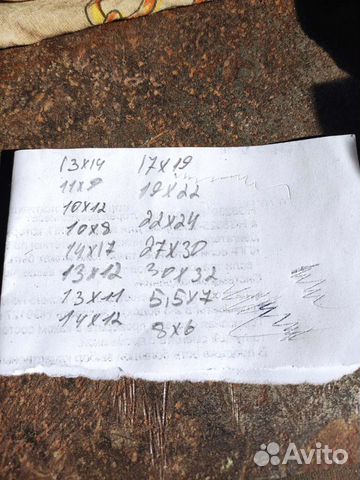 13x14
11x9
10x12
10x8
14x17
13x12
13x11
14x12
17x19
19x22
22x24
27x30
30x32
5,5x7
8x6
Avito